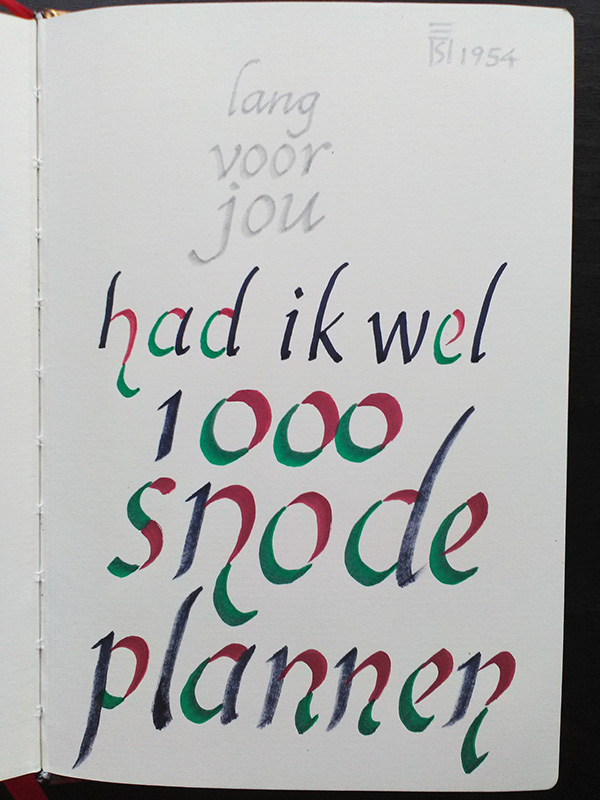 1954
lang
voor
jou
had ik wel
1000
snode
plannen